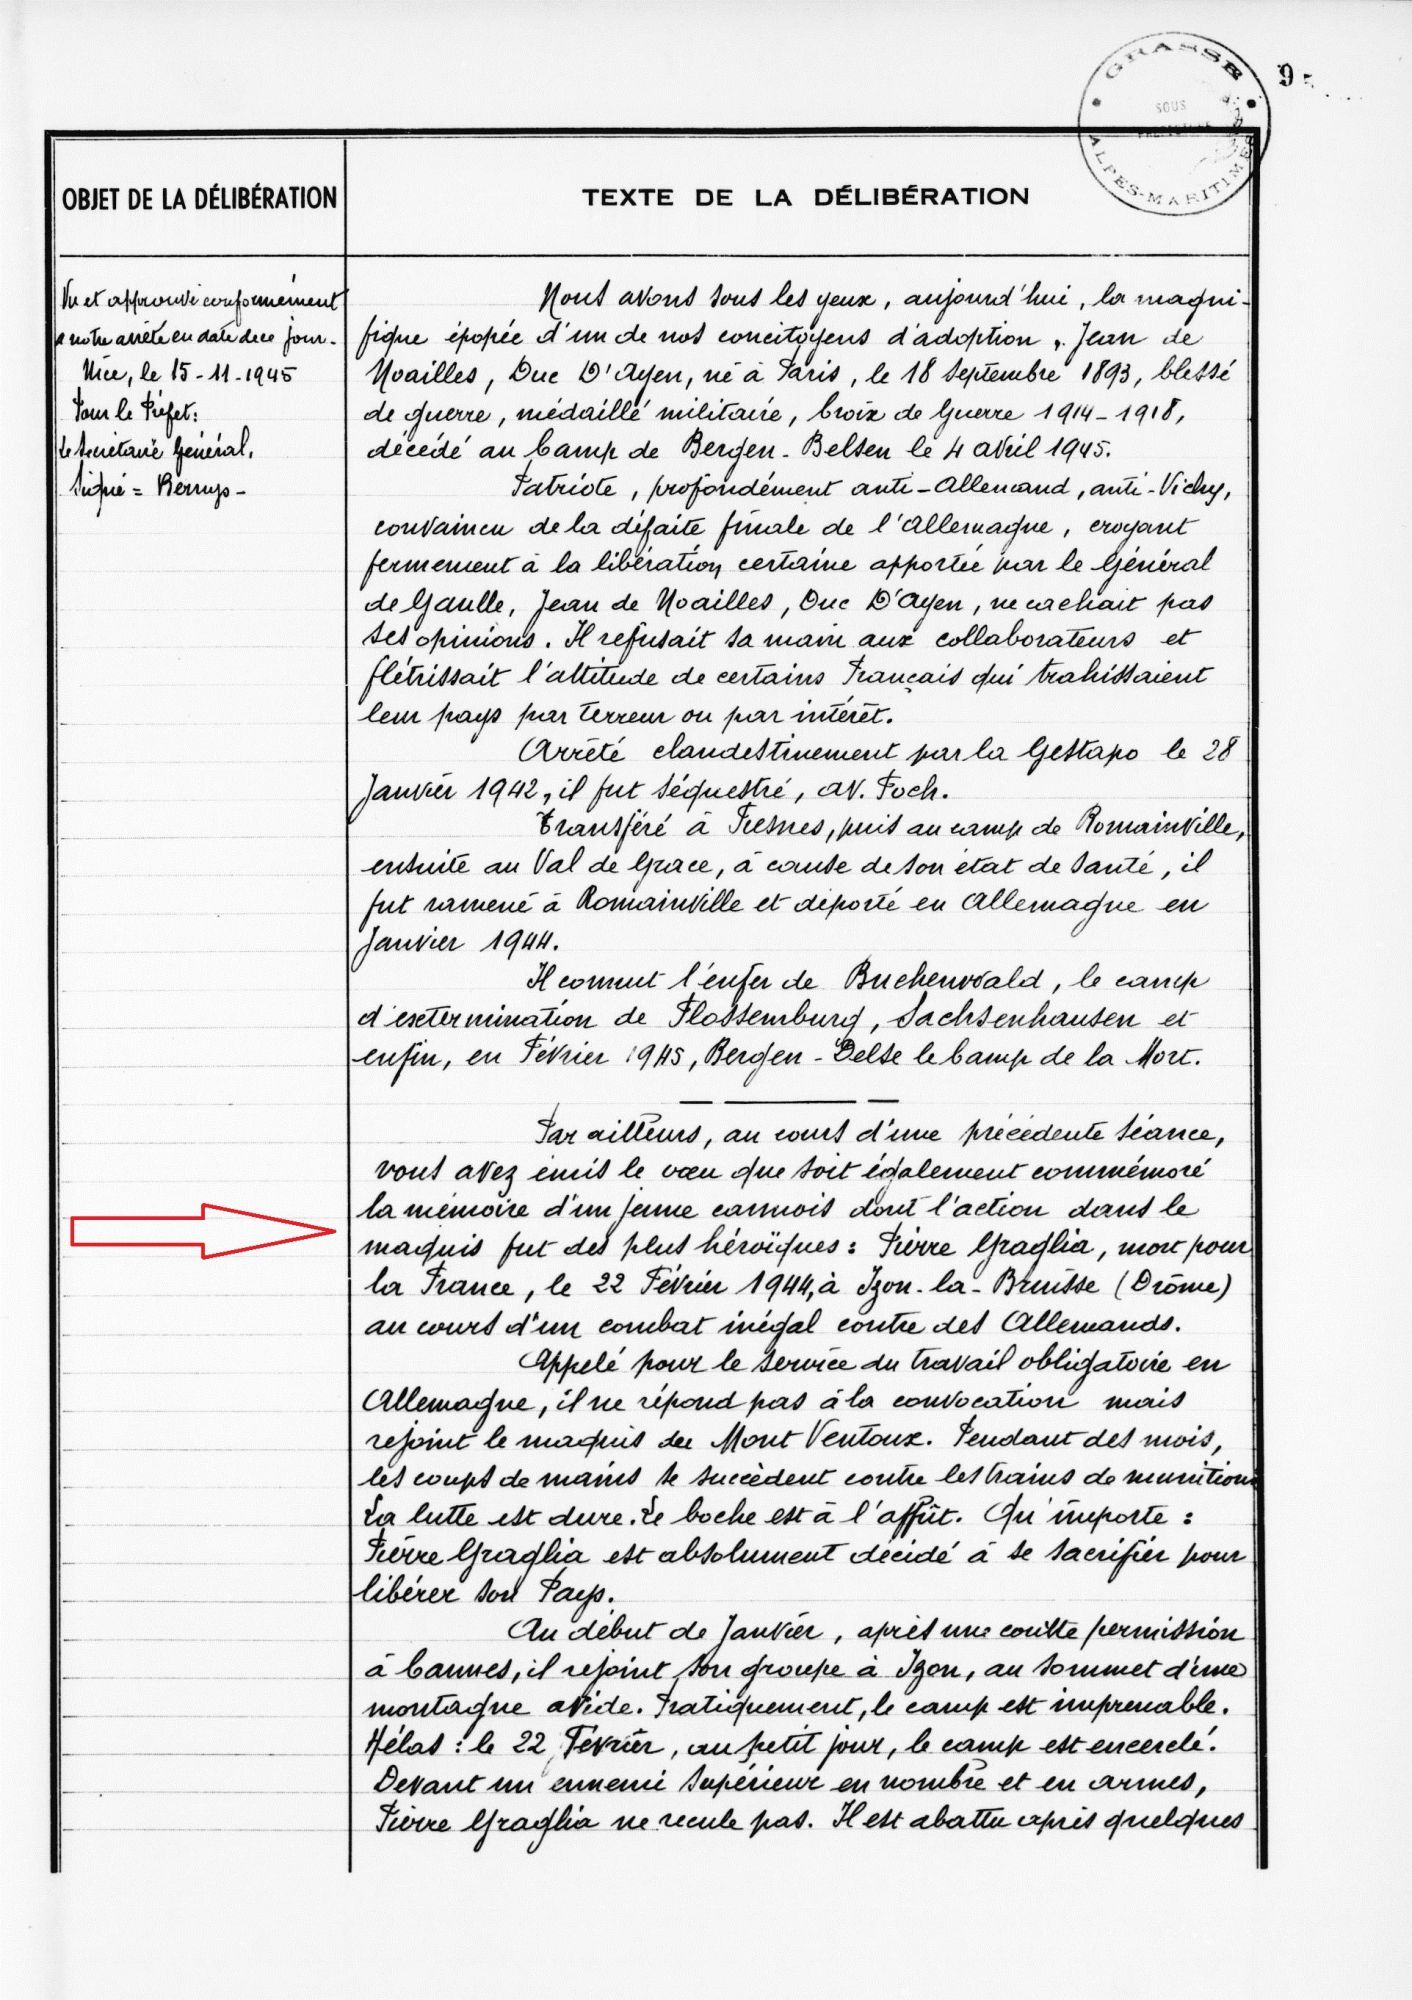 GRASSE
SOUS
ALPES-MARITIMES
9
OBJET DE LA DÉLIBÉRATION
TEXTE DE LA DÉLIBÉRATION
Vu et approuvé conformément
à notre arrêté en date de ce jour.
Nice, le 15-11-1945
Pour le Préfet:
Le Secrétaire Général,
Signé =
Nous avons sous les yeux, aujourd'hui, la magni-
fique épopée d'un de nos concitoyens d'adoption, Jean de
Noailles, Duc D'Ayen, né à Paris, le 18 Septembre 1893, blessé
de guerre, médaillé militaire, Croix de Guerre 1914-1918,
décédé au Camp de Bergen-Belsen le 4 avril 1945.
Patriote, profondément anti-Allemand, anti-Vichy,
convaincu de la défaite finale de l'Allemagne, croyant
fermement à la libération certaine apportée par le Général
de Gaulle, Jean de Noailles, Duc D'Ayen, ne cachait pas
ses opinions. Il refusait sa main aux collaborateurs et
flétrissait l'attitude de certains Français qui trahissaient
leur pays par terreur ou par intérêt.
Arrêté clandestinement par la Gestapo le 28
Janvier 1942, il fut séquestré, av. Foch.
Transféré à Fresnes, puis au camp de Romainville,
ensuite au Val de Grace, à cause de son état de santé, il
fut ramené à Romainville et déporté en Allemagne en
Janvier 1944.
Il connut l'enfer de Buchenwald, le camp
d'extermination de Flossemburg, Sachsenhausen et
enfin, en Février 1945, Bergen-Belse le Camp de la Mort.
Par ailleurs, au cours d'une précédente séance,
vous avez émis le vœu que soit également commémoré
la mémoire d'un jeune cannois dont l'action dans le
maquis fut des plus héroïques : Pierre Graglia, mort pour
la France, le 22 Février 1944, à Izon-la-Bruisse (Drôme)
au cours d'un combat inégal contre des Allemands.
Appelé pour le service du travail obligatoire en
Allemagne, il ne répond pas à la convocation mais
rejoint le maquis du Mont Ventoux. Pendant des mois,
les coups de mains se succèdent contre les trains de munitions
La lutte est dure. Le boche est à l'affût. Qu'importe :
Pierre Graglia est absolument décidé à se sacrifier pour
libérer son Pays.
Au début de Janvier, après une courte permission
à Cannes, il rejoint son groupe à Izon, au sommet d'une
montagne aride. Pratiquement, le camp est imprenable.
Hélas : le 22 Février, au petit jour, le camp est encerclé.
Devant un ennemi supérieur en nombre et en armes,
Pierre Graglia ne recule pas. Il est abattu après quelques